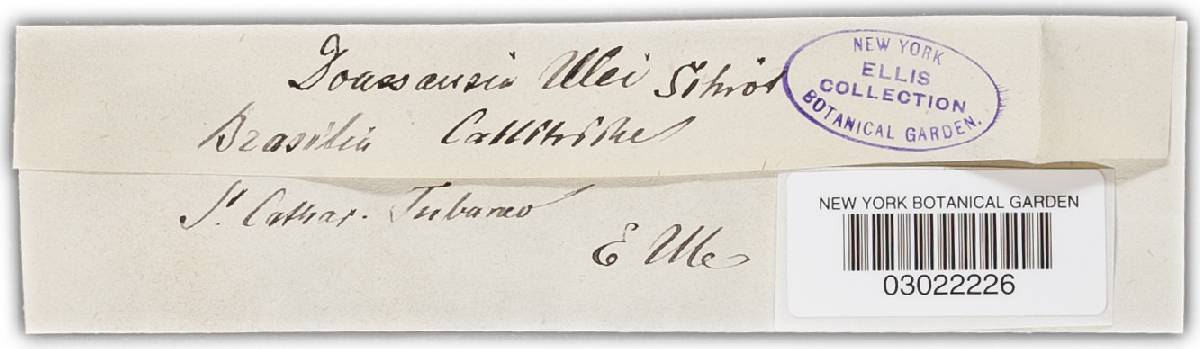 Doassansia Ulei Schröt
Brasilia Callitriche
St. Cathar. Tubarao
E Ule
NEW YORK
ELLIS
COLLECTION
BOTANICAL GARDEN.
NEW YORK BOTANICAL GARDEN
03022226